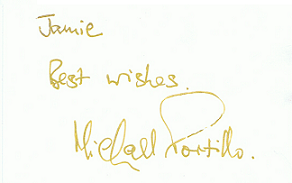 Jamie
Best wishes.
Michael Portillo.